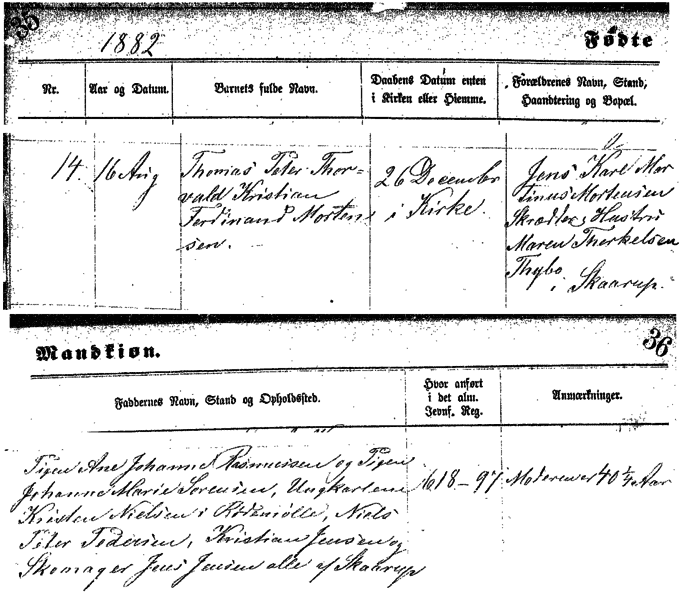 35
1882
Fødte
Nr.
Aar og Datum.
Barnets fulde Navn.
Daabens Datum enten
i Kirken eller Hjemme.
Forældrenes Navn, Stand,
Haandtering og Bopæl.
14.
16 Aug
Thomas Peter Thor-
vald Kristian
Ferdinand Morten-
sen.
26 December
i Kirke.
Jens Karl Mor
tinus Mortensen
Skrædder, Hustru
Maren Therkelsen
Thybo
i Skaarup.
Mandkiøn.
36
Faddernes Navn, Stand og Opholdssted.
Hvor anført
i det alm.
Jevnf. Reg.
Anmærkninger.
Pigen Ane Johanne Rasmussen og Pigen
Johanne Marie Sørensen, Ungkarlene
Kristen Nielsen i Rødemølle, Niels
Peter Pedersen, Kristian Jensen og
Skomager Jens Jensen alle af Skaarup
618-97
Moderen er 40 1/4 Aar